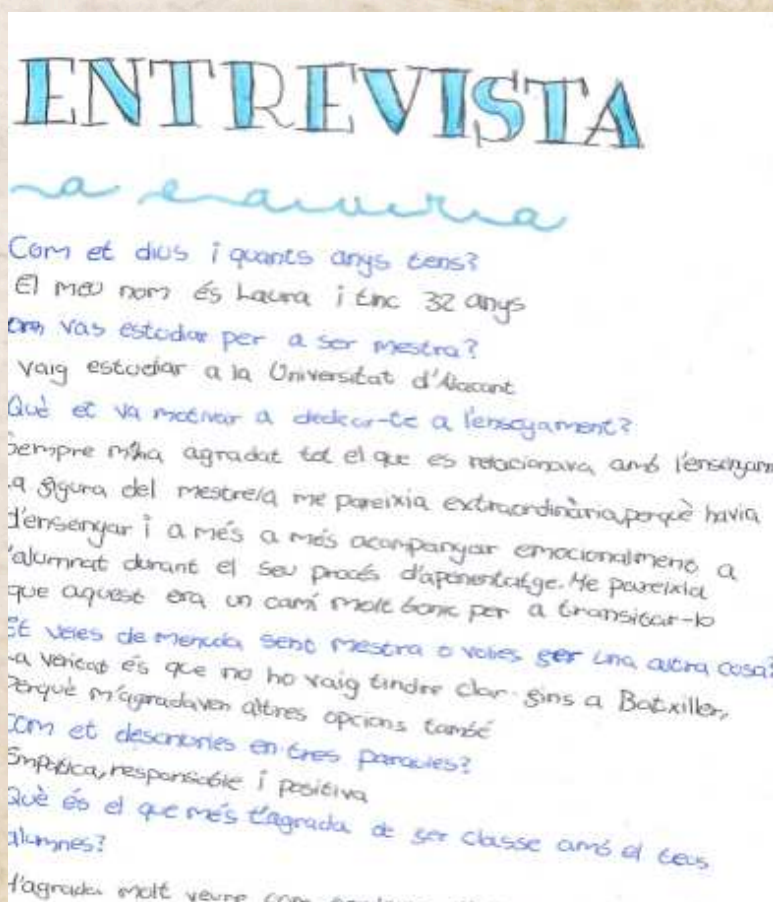 ENTREVISTA
a
Com et dius i quants anys tens?
El meu nom és Laura i tinc 32 anys
on vas estudiar per a ser mestra?
vaig estudiar a la Universitat d'Alacant
Què et va motivar a dedicar-te a l'ensenyament?
Sempre m'ha agradat tot el que es relacionava amb
La figura del mestre/a me pareixia extraordinària, perquè havia
d'ensenyar i a més a més acompanyar emocionalment a
l'alumnat durant el seu procés d'aprenentatge. Me pareixia
que aquest era un camí molt bonic per a transitar-lo
Et veies de menuda sent mestra o volies ser una altra cosa?
La veritat és que no ho vaig tindre clar fins a Batxiller,
Perquè m'agradaven altres opcions també
Com et descriuries en tres paraules?
Empàtica, responsable i positiva
Què és el que més t'agrada de ser classe amb el teus
alumnes?
M'agrada molt veure com